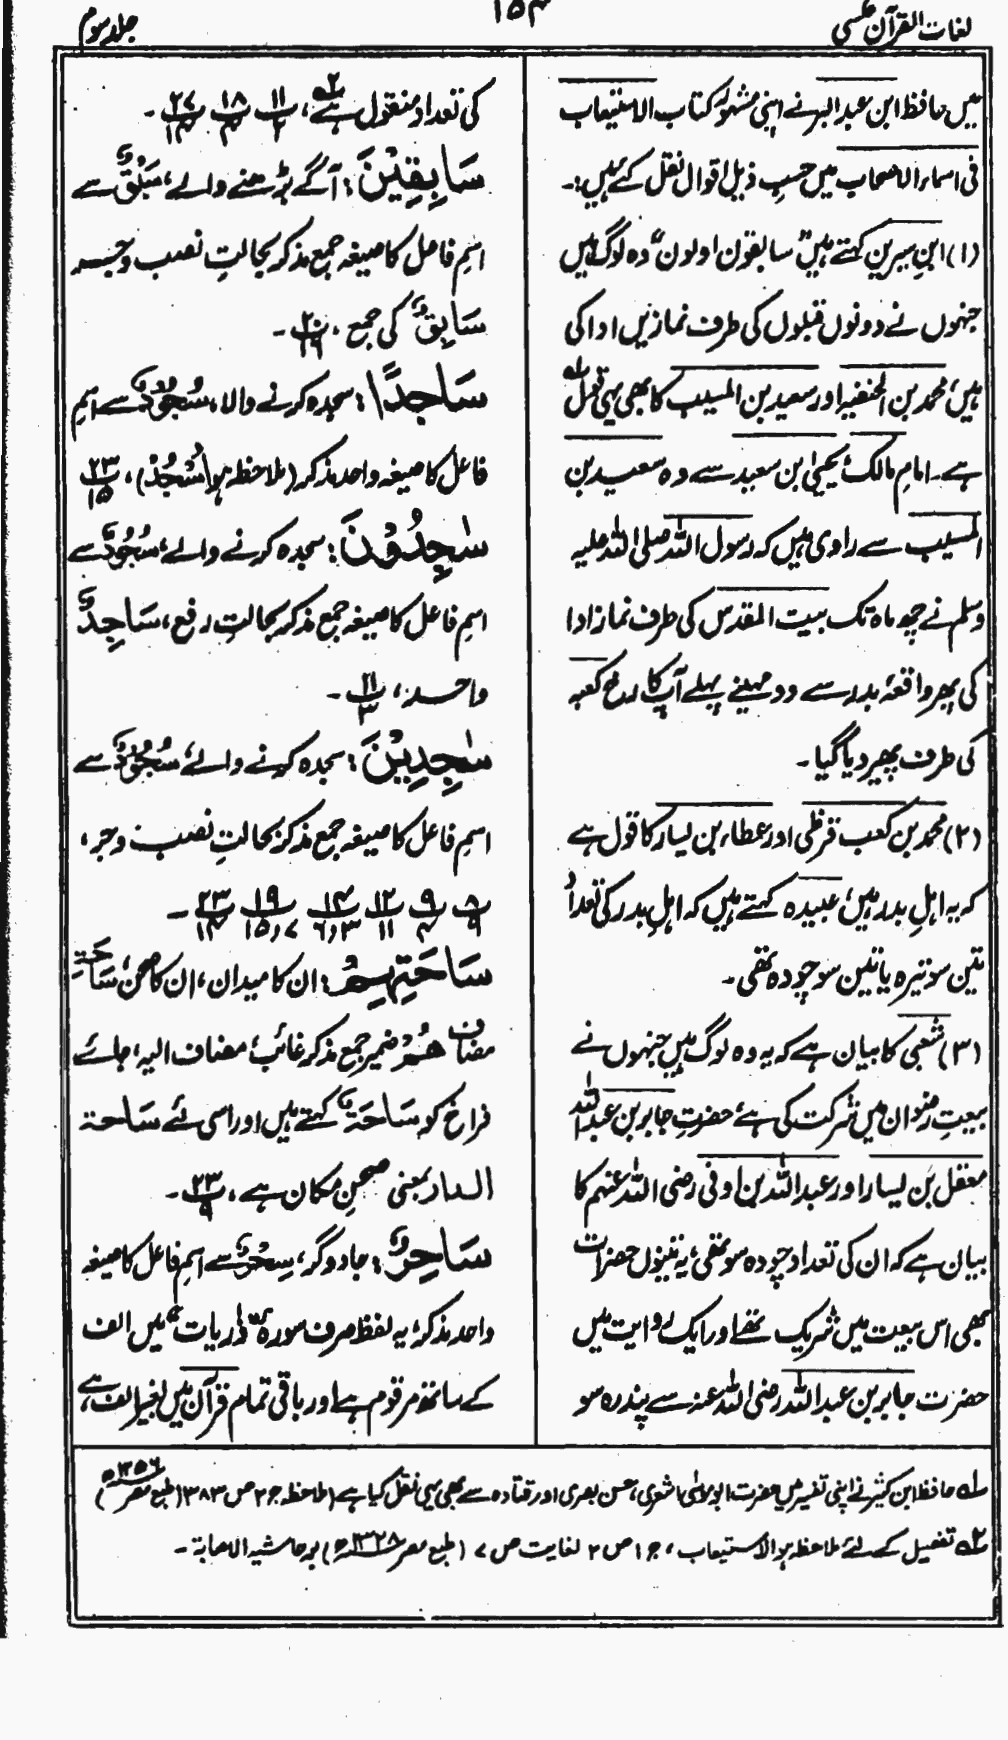 لغات القرآن عکسی
۱۵۴
جلد سوم
میں حافظ ابن عبدالبر نے اپنی مشہور کتاب الاستیعاب
فی اسماء الاصحاب میں حسبِ ذیل اقوال نقل کئے ہیں:۔
(۱) ابنِ سیرین کہتے ہیں "سابقون اولون" وہ لوگ ہیں
جنہوں نے دونوں قبلوں کی طرف نمازیں ادا کی
ہیں، محمد بن الحنفیہ اور سعید بن المسیب کا بھی یہی قول
ہے۔ امام مالکؒ یحییٰ بن سعید سے وہ سعید بن
المسیب سے راوی ہیں کہ رسول اللہ صلی اللہ علیہ
وسلم نے چھ ماہ تک بیت المقدس کی طرف نماز ادا
کی پھر واقعۂ بدر سے دو مہینے پہلے آپ کا رخ کعبہ
کی طرف پھیر دیا گیا۔
(۲) محمد بن کعب قرظی اور عطاء بن یسار کا قول ہے
کہ یہ اہلِ بدر ہیں، عبیدہ کہتے ہیں کہ اہلِ بدر کی تعداد
تین سو تیرہ یا تین سو چودہ تھی۔
(۳) شعبی کا بیان ہے کہ یہ وہ لوگ ہیں جنہوں نے
بیعتِ رضوان میں شرکت کی ہے، حضرت جابر بن عبداللہ
معقل بن یسار اور عبداللہ بن اوفی رضی اللہ عنہم کا
بیان ہے کہ ان کی تعداد چودہ سو تھی، یہ تینوں حضرات
بھی اس بیعت میں شریک تھے اور ایک روایت میں
حضرت جابر بن عبداللہ رضی اللہ عنہ سے پندرہ سو
کی تعداد منقول ہے، ۱۱/۲ ۱۸/۴ ۲۷/۱۴ ۔
سَابِقِیْنَ: آگے بڑھنے والے، سَبْقٌ سے
اسمِ فاعل کا صیغہ جمع مذکر بحالتِ نصب و جر
سَابِقٌ کی جمع، ۲۰/۱۶ ۔
سَاجِدًا: سجدہ کرنے والا، سُجُوْدٌ سے اسمِ
فاعل کا صیغہ واحد مذکر (ملاحظہ ہو اُسْجُدْ)، ۲۳/۱۵
سٰجِدُوْنَ: سجدہ کرنے والے، سُجُوْدٌ سے
اسمِ فاعل کا صیغہ جمع مذکر بحالتِ رفع، سَاجِدٌ
واحد، ۱۱/۳ ۔
سٰجِدِیْنَ: سجدہ کرنے والے، سُجُوْدٌ سے
اسمِ فاعل کا صیغہ جمع مذکر بحالتِ نصب و جر،
۸/۹ ۹/۴ ۱۲/۱۱ ۱۴/۳،۶ ۱۹/۷،۱۵ ۲۳/۱۴ ۔
سَاحَتِہِمْ: ان کا میدان، ان کا صحن، سَاحَۃِ
مضاف ھُمْ ضمیر جمع مذکر غائب، مضاف الیہ، جائے
فراخ کو سَاحَۃٌ کہتے ہیں اور اسی لئے ساحۃ
الدار بمعنی صحنِ مکان ہے، ۲۳/۹ ۔
سَاحِرٌ: جادوگر، سِحْرٌ سے اسمِ فاعل کا صیغہ
واحد مذکر، یہ لفظ صرف سورہ "ذٰریات" میں الف
کے ساتھ مرقوم ہے اور باقی تمام قرآن میں بغیر الف ہے،
۱؎ حافظ ابن کثیر نے اپنی تفسیر میں حضرت ابو موسیٰ اشعری، حسن بصری اور قتادہ سے بھی یہی نقل کیا ہے (ملاحظہ ج ۲ ص ۳۸۳ (طبع مصر ۱۳۵۶ھ)
۲؎ تفصیل کے لئے ملاحظہ ہو الاستیعاب، ج ۱ ص ۲ لغایت ص ۷ (طبع مصر ۱۳۲۸ھ) بر حاشیہ الاصابۃ ۔